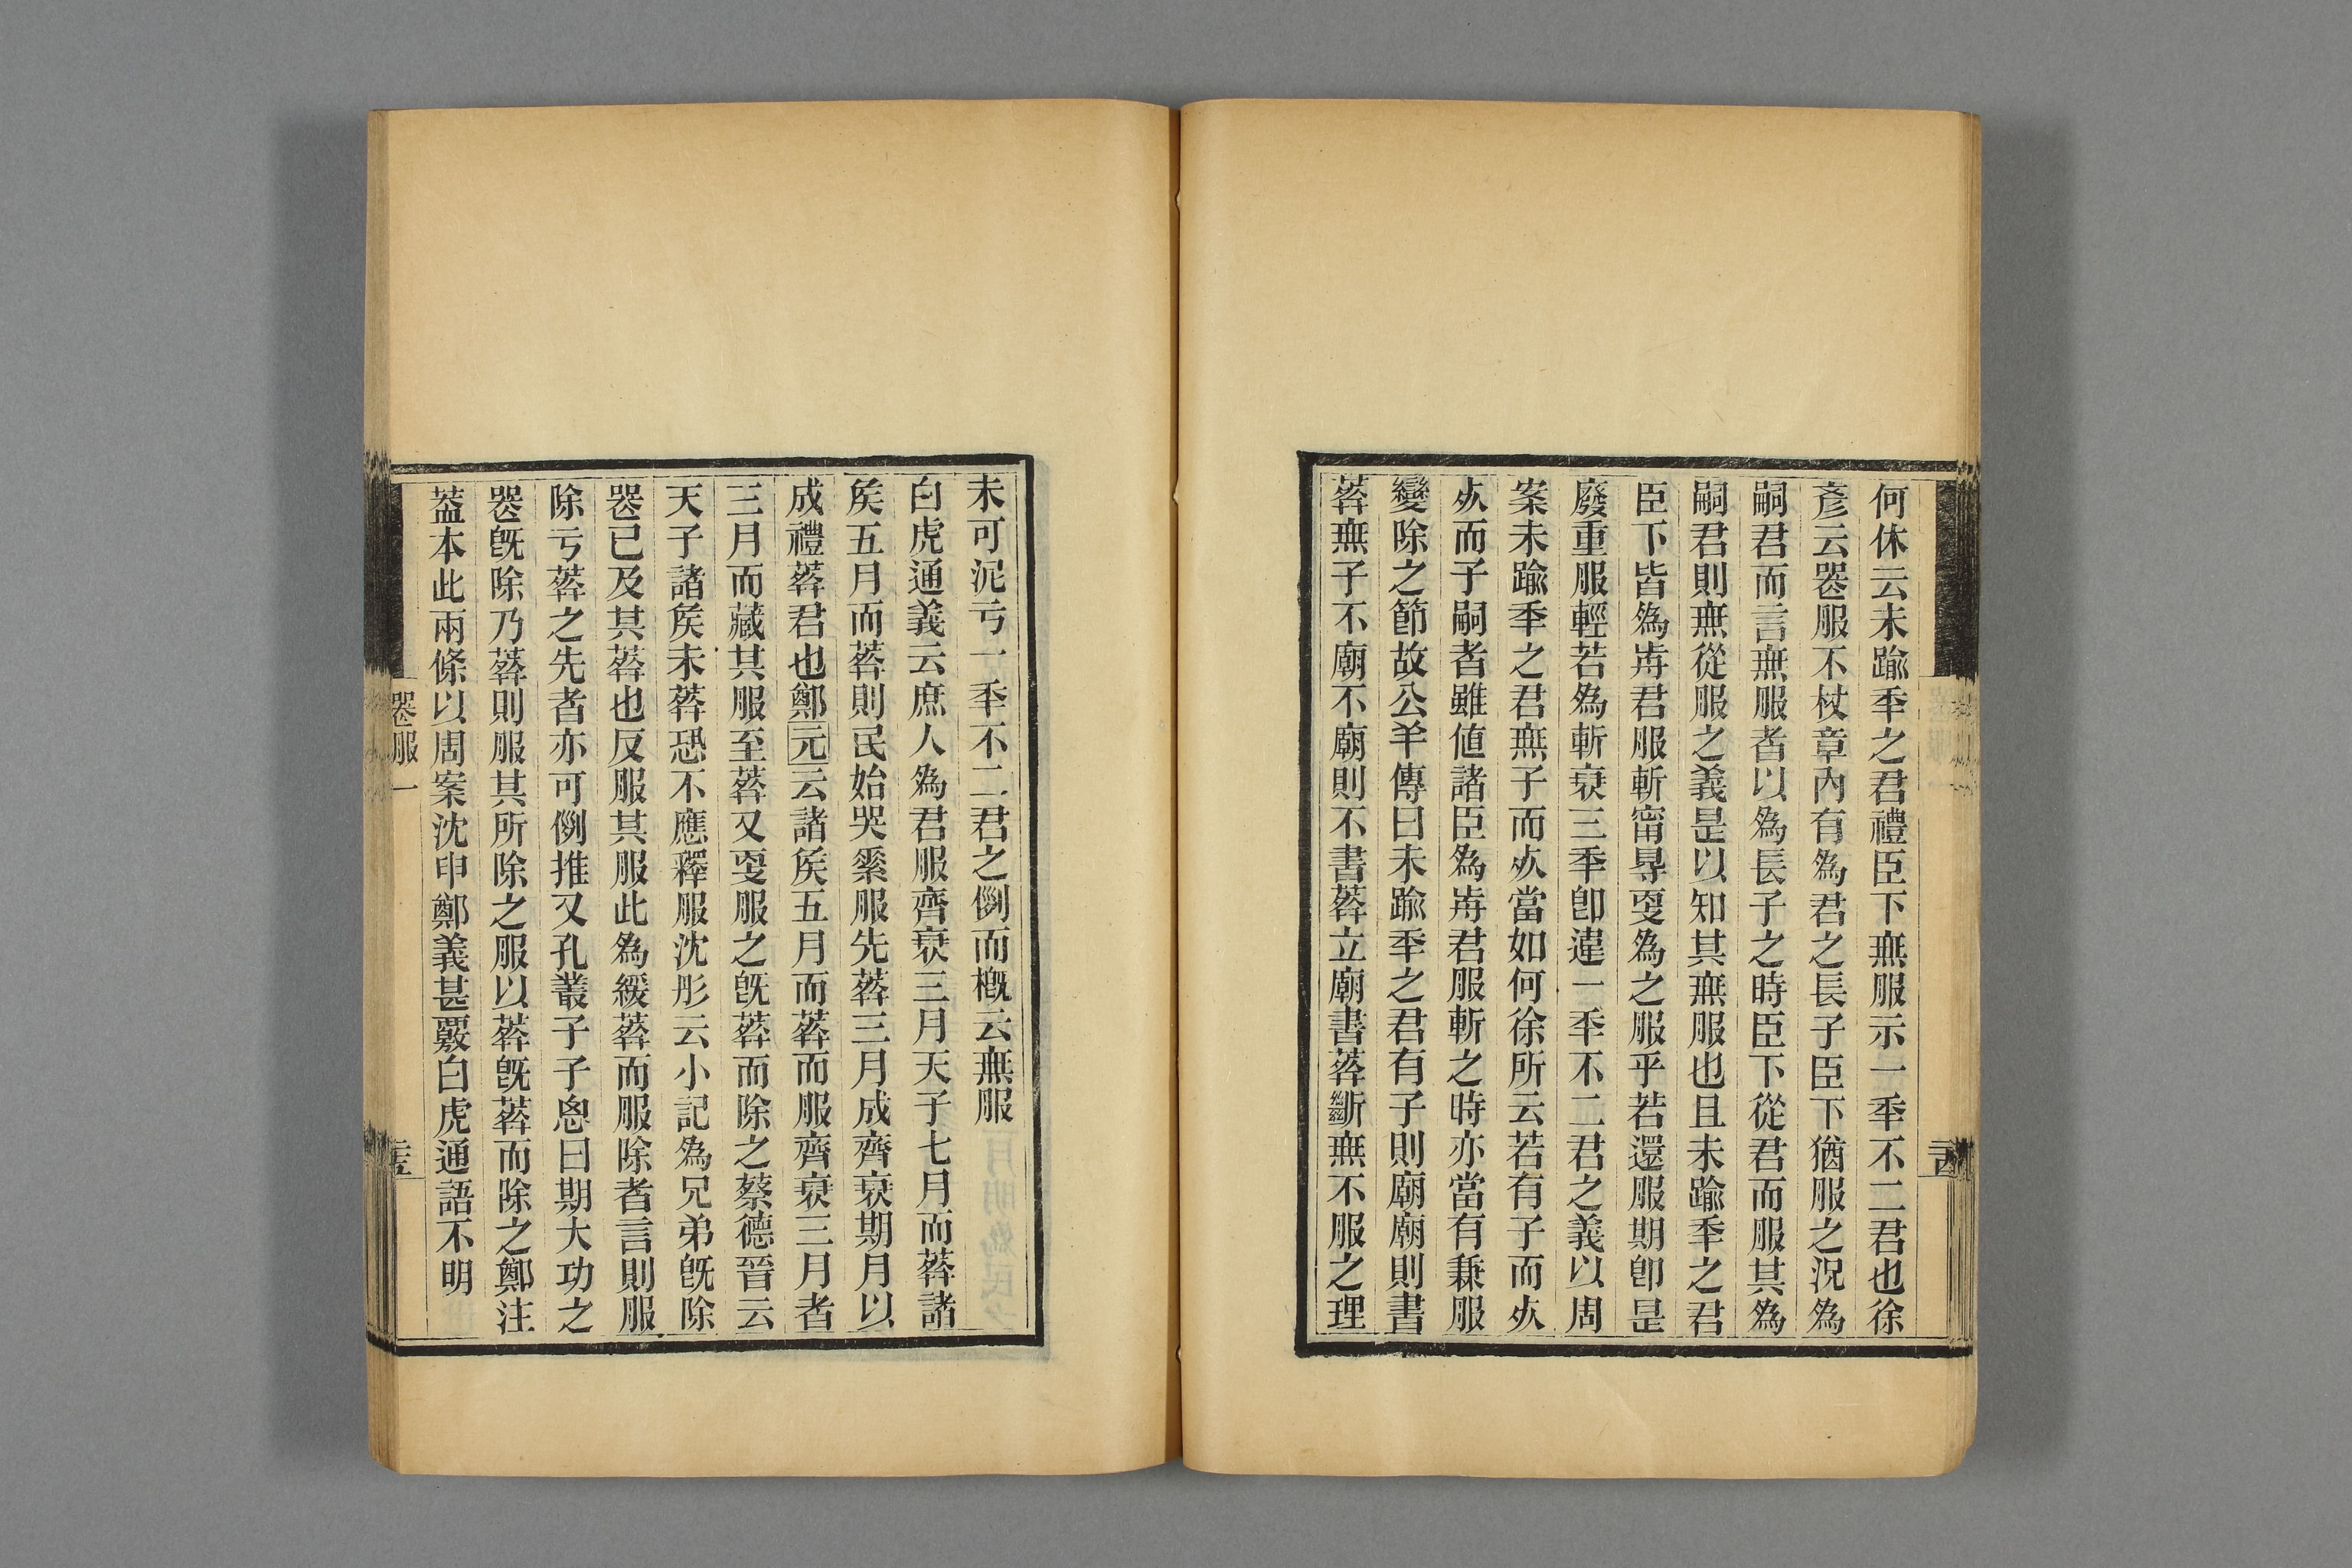 何休云未踰秊之君禮臣下無服示一秊不二君也徐
彥云喪服不杖章內有爲君之長子臣下猶服之況爲
嗣君而言無服者以爲長子之時臣下從君而服其爲
嗣君則無從服之義是以知其無服也且未踰秊之君
臣下皆爲歬君服斬甯㝵㪅爲之服乎若還服期卽是
廢重服輕若爲斬衰三秊卽違一秊不二君之義以周
案未踰秊之君無子而㱙當如何徐所云若有子而㱙
㱙而子嗣者雖値諸臣爲歬君服斬之時亦當有兼服
變除之節故公羊傳曰未踰秊之君有子則廟廟則書
葬無子不廟不廟則不書葬立廟書葬斷無不服之理
未可泥亏一秊不二君之例而槪云無服
白虎通義云庶人爲君服齊衰三月天子七月而葬諸
矦五月而葬則民始哭素服先葬三月成齊衰期月以
成禮葬君也鄭元云諸矦五月而葬而服齊衰三月者
三月而藏其服至葬又㪅服之旣葬而除之蔡德晉云
天子諸矦未葬恐不應釋服沈彤云小記爲兄弟旣除
喪已及其葬也反服其服此爲緩葬而服除者言則服
除亏葬之先者亦可例推又孔叢子子思曰期大功之
喪旣除乃葬則服其所除之服以葬旣葬而除之鄭注
葢本此兩條以周案沈申鄭義甚覈白虎通語不明
喪服一